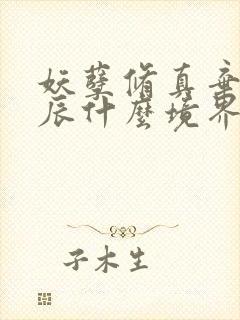 妖孽修真弃
辰什麼境界
子木生